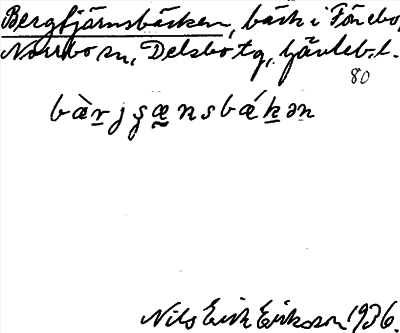 Bergtjärnsbäcken, bäck i Fönebo,
Norrbo sn, Delsbo tg, Gävleb. l.
80
bàrjʂænsbákən
Nils Erik Eriksson 1936.